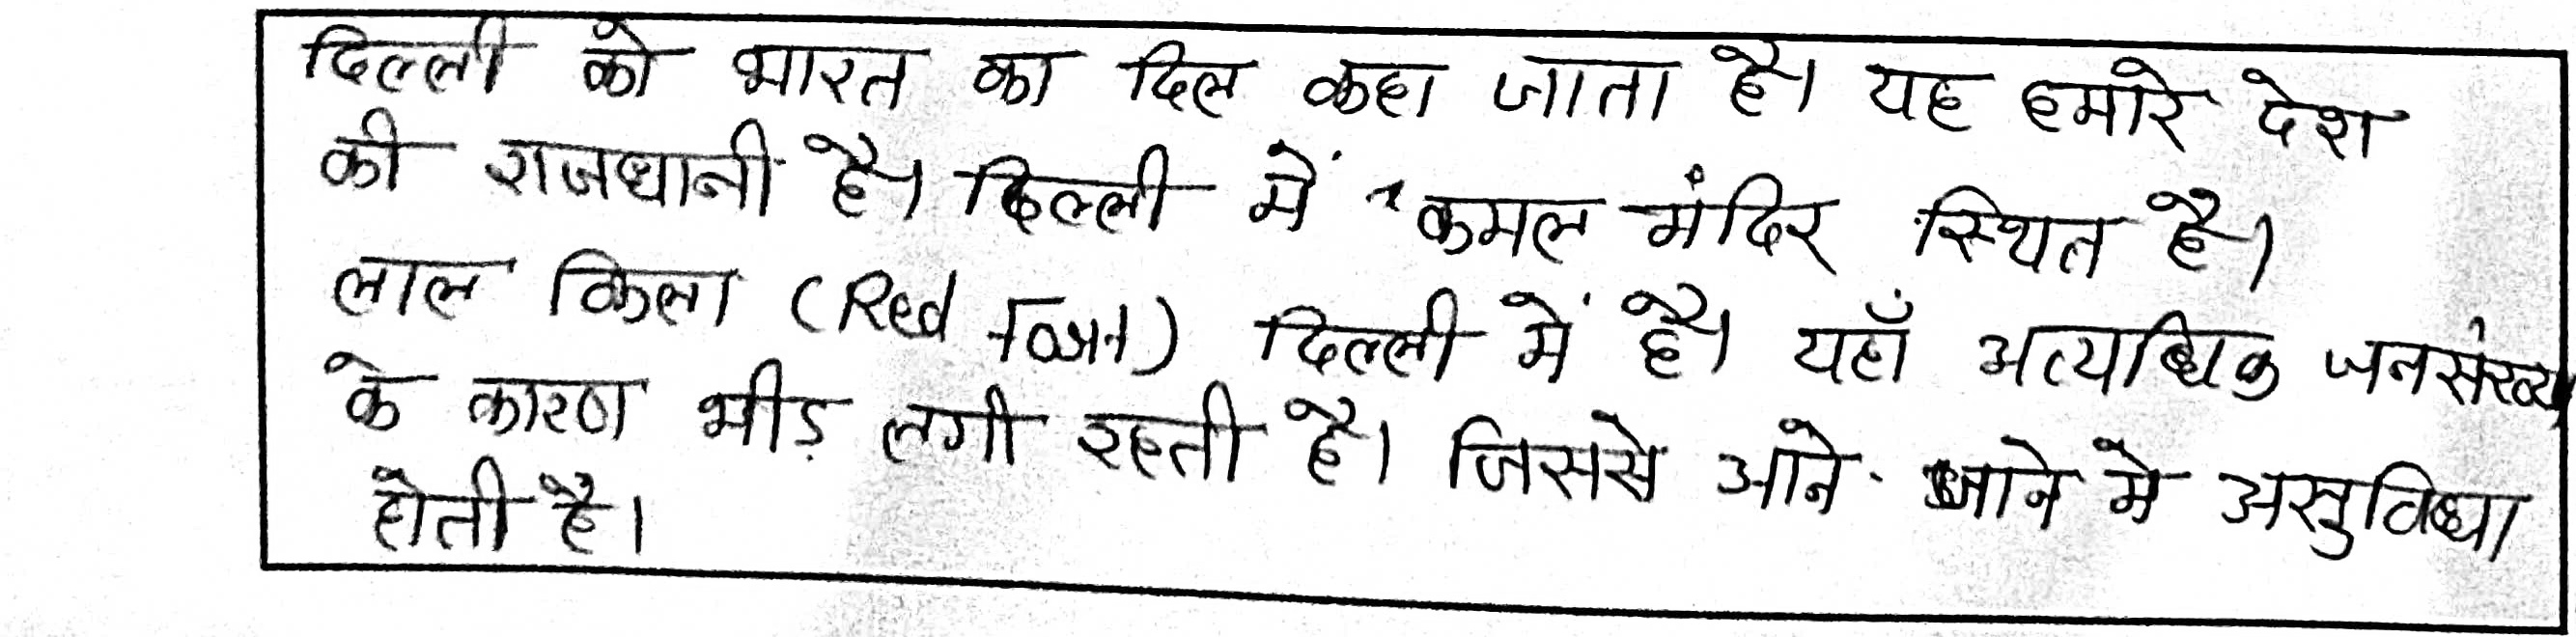 दिल्ली को भारत का दिल कहा जाता है। यह हमारे देश
की राजधानी है। दिल्ली में कमल मंदिर स्थित है।
लाल किला (Red fort) दिल्ली में है। यहाँ अत्यधिक जनसंख्या
के कारण भीड़ लगी रहती है। जिससे आने-जाने मे असुविधा
होती है।